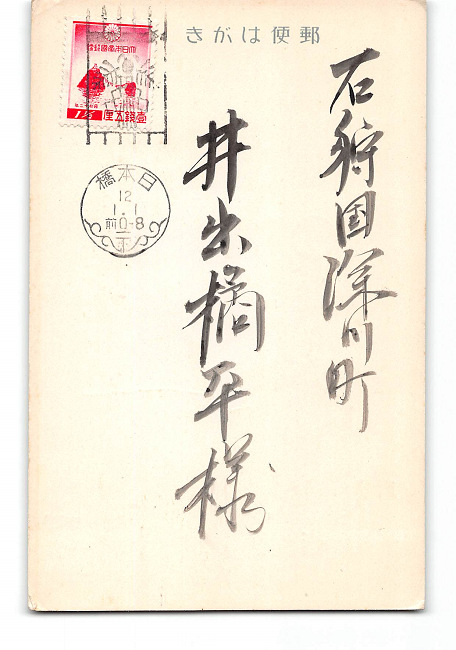 きがは便郵
大日本帝国郵便
1½ 壹錢五厘
日本橋
12
1.1
前0-8
石狩国深川町
井出橘平様